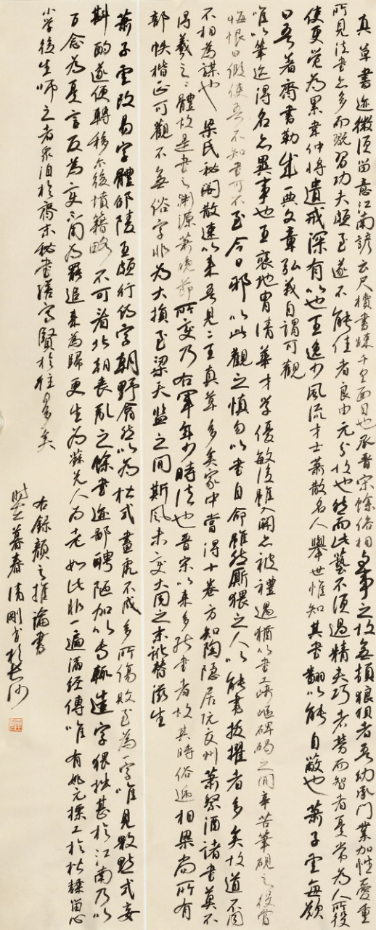 真草書迹微須留意江南諺云尺牘書疎千里面目也承晉宋餘俗相與事之故無頓狼狽者吾幼承門業加性愛重
所見法書亦多而翫習功夫頗至遂不能佳者良由无分故也然而此藝不須過精夫巧者勞而智者憂常為人所役
使更覺為累韋仲將遺戒深有以也王逸少風流才士蕭散名人舉世惟知其書翻以能自蔽也蕭子雲每歎
曰吾著齊書勒成一典文章弘義自謂可觀
唯以筆迹得名亦異事也王褒地胄清華才學優敏後雖入關亦被禮遇猶以書工崎嶇碑碣之間辛苦筆硯之役嘗
悔恨曰假使吾不知書可不至今日邪以此觀之慎勿以書自命雖然廝猥之人以能書拔擢者多矣故道不同
不相為謀也梁氏秘閣散逸以來吾見二王真草多矣家中嘗得十卷方知陶隱居阮交州蕭祭酒諸書莫不
得羲之之體故是書之淵源蕭晚節所變乃右軍年少時法也晉宋以來多能書者故其時俗遞相染尚所有
部帙楷正可觀不無俗字非為大損至梁天監之間斯風未變大同之末訛替滋生
蕭子雲改易字體邵陵王頗行偽字朝野翕然以為楷式畫虎不成多所傷敗至為一字唯見數點或妄
斟酌遂便轉移尔後墳籍略不可看北朝喪亂之餘書迹鄙陋加以專輒造字猥拙甚於江南乃以
百念為憂言反為變不用為罷追來為歸更生為蘇先人為老如此非一遍滿經傳唯有姚元標工於楷隸留心
小學後生師之者眾洎於齊末秘書繕寫賢於往日多矣
右錄顏之推論書
暮春清剛書於長沙